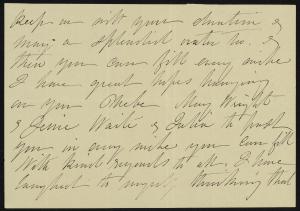 keep on with your &
many a splendid water too. &
then you can fill every niche
I have great hopes hanging
on you Phebe Mary Wright
& Jennie Waite & Julia to post
you in every niche you can fill
With kind regards to all. I have
laughed to myself thinking that